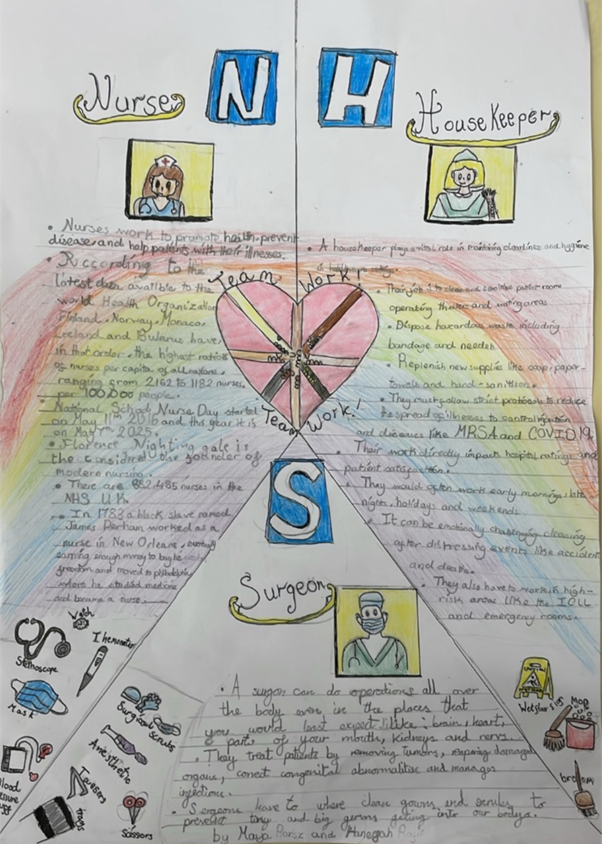 N H
Nurse
HouseKeeper
• Nurses work to promote health, prevent
disease and help patients with their illnesses.
• According to the
latest data availble to the
World Health Organization
Finland, Norway, Monaco,
Ireland and Belarus have
in that order, the highest ratios
of nurses per capita of all nations
ranging from 2162 to 1182 nurses,
per 100,000 people.
• National School Nurse Day started
on May 11th 2016 and this year it is
on May 2025.
• Florence Nightingale is
the considered the founder of
modern nursing.
• There are 682,485 nurses in the
NHS UK
• In 1783 a black slave named
James Derham worked as a
nurse in New Orleans, eventually
earning enough money to buy his
freedom and moved to
where he studied medicine
and became a nurse.
Team Work!
Team Work!
• A housekeeper plays a vital role in cleanliness and hygiene
• Their job is to clean and sanitise patient room
operating theatre and waiting areas
• Dispose hazardous waste including
bandage and needles
• Replenish new supplies like soap, paper-
towels and hand-sanitisers.
• They must follow strict protocols to reduce
the spread of illness to
and diseases like MRSA and COVID 19.
• Their work directly impacts hospital ratings and
patient satisfaction.
• They would often work early mornings, late
nights, holidays and weekends.
• It can be emotionally challenging cleaning
after distressing events like accident
and deaths.
• They also have to work in high-
risk areas like the
and emergency rooms.
S
Surgeon
• A surgon can do operations all over
the body even in the places that
you would least expect like: brain, heart,
parts of your mouth, kidneys and nervs.
• They treat patients by removing tumors, repairing damaged
organs, correct congenital abnormalities and manages
infections.
• Surgeons have to where clean gowns and scrubs to
prevent tiny and big germs getting into our bodys.
by Maya and
Stethoscope
Watch
Thermometer
Mask
Surgeon Scrubs
Anesthetic
Blood
Tweezers
Scissors
Wet floor sign
Mop
broom